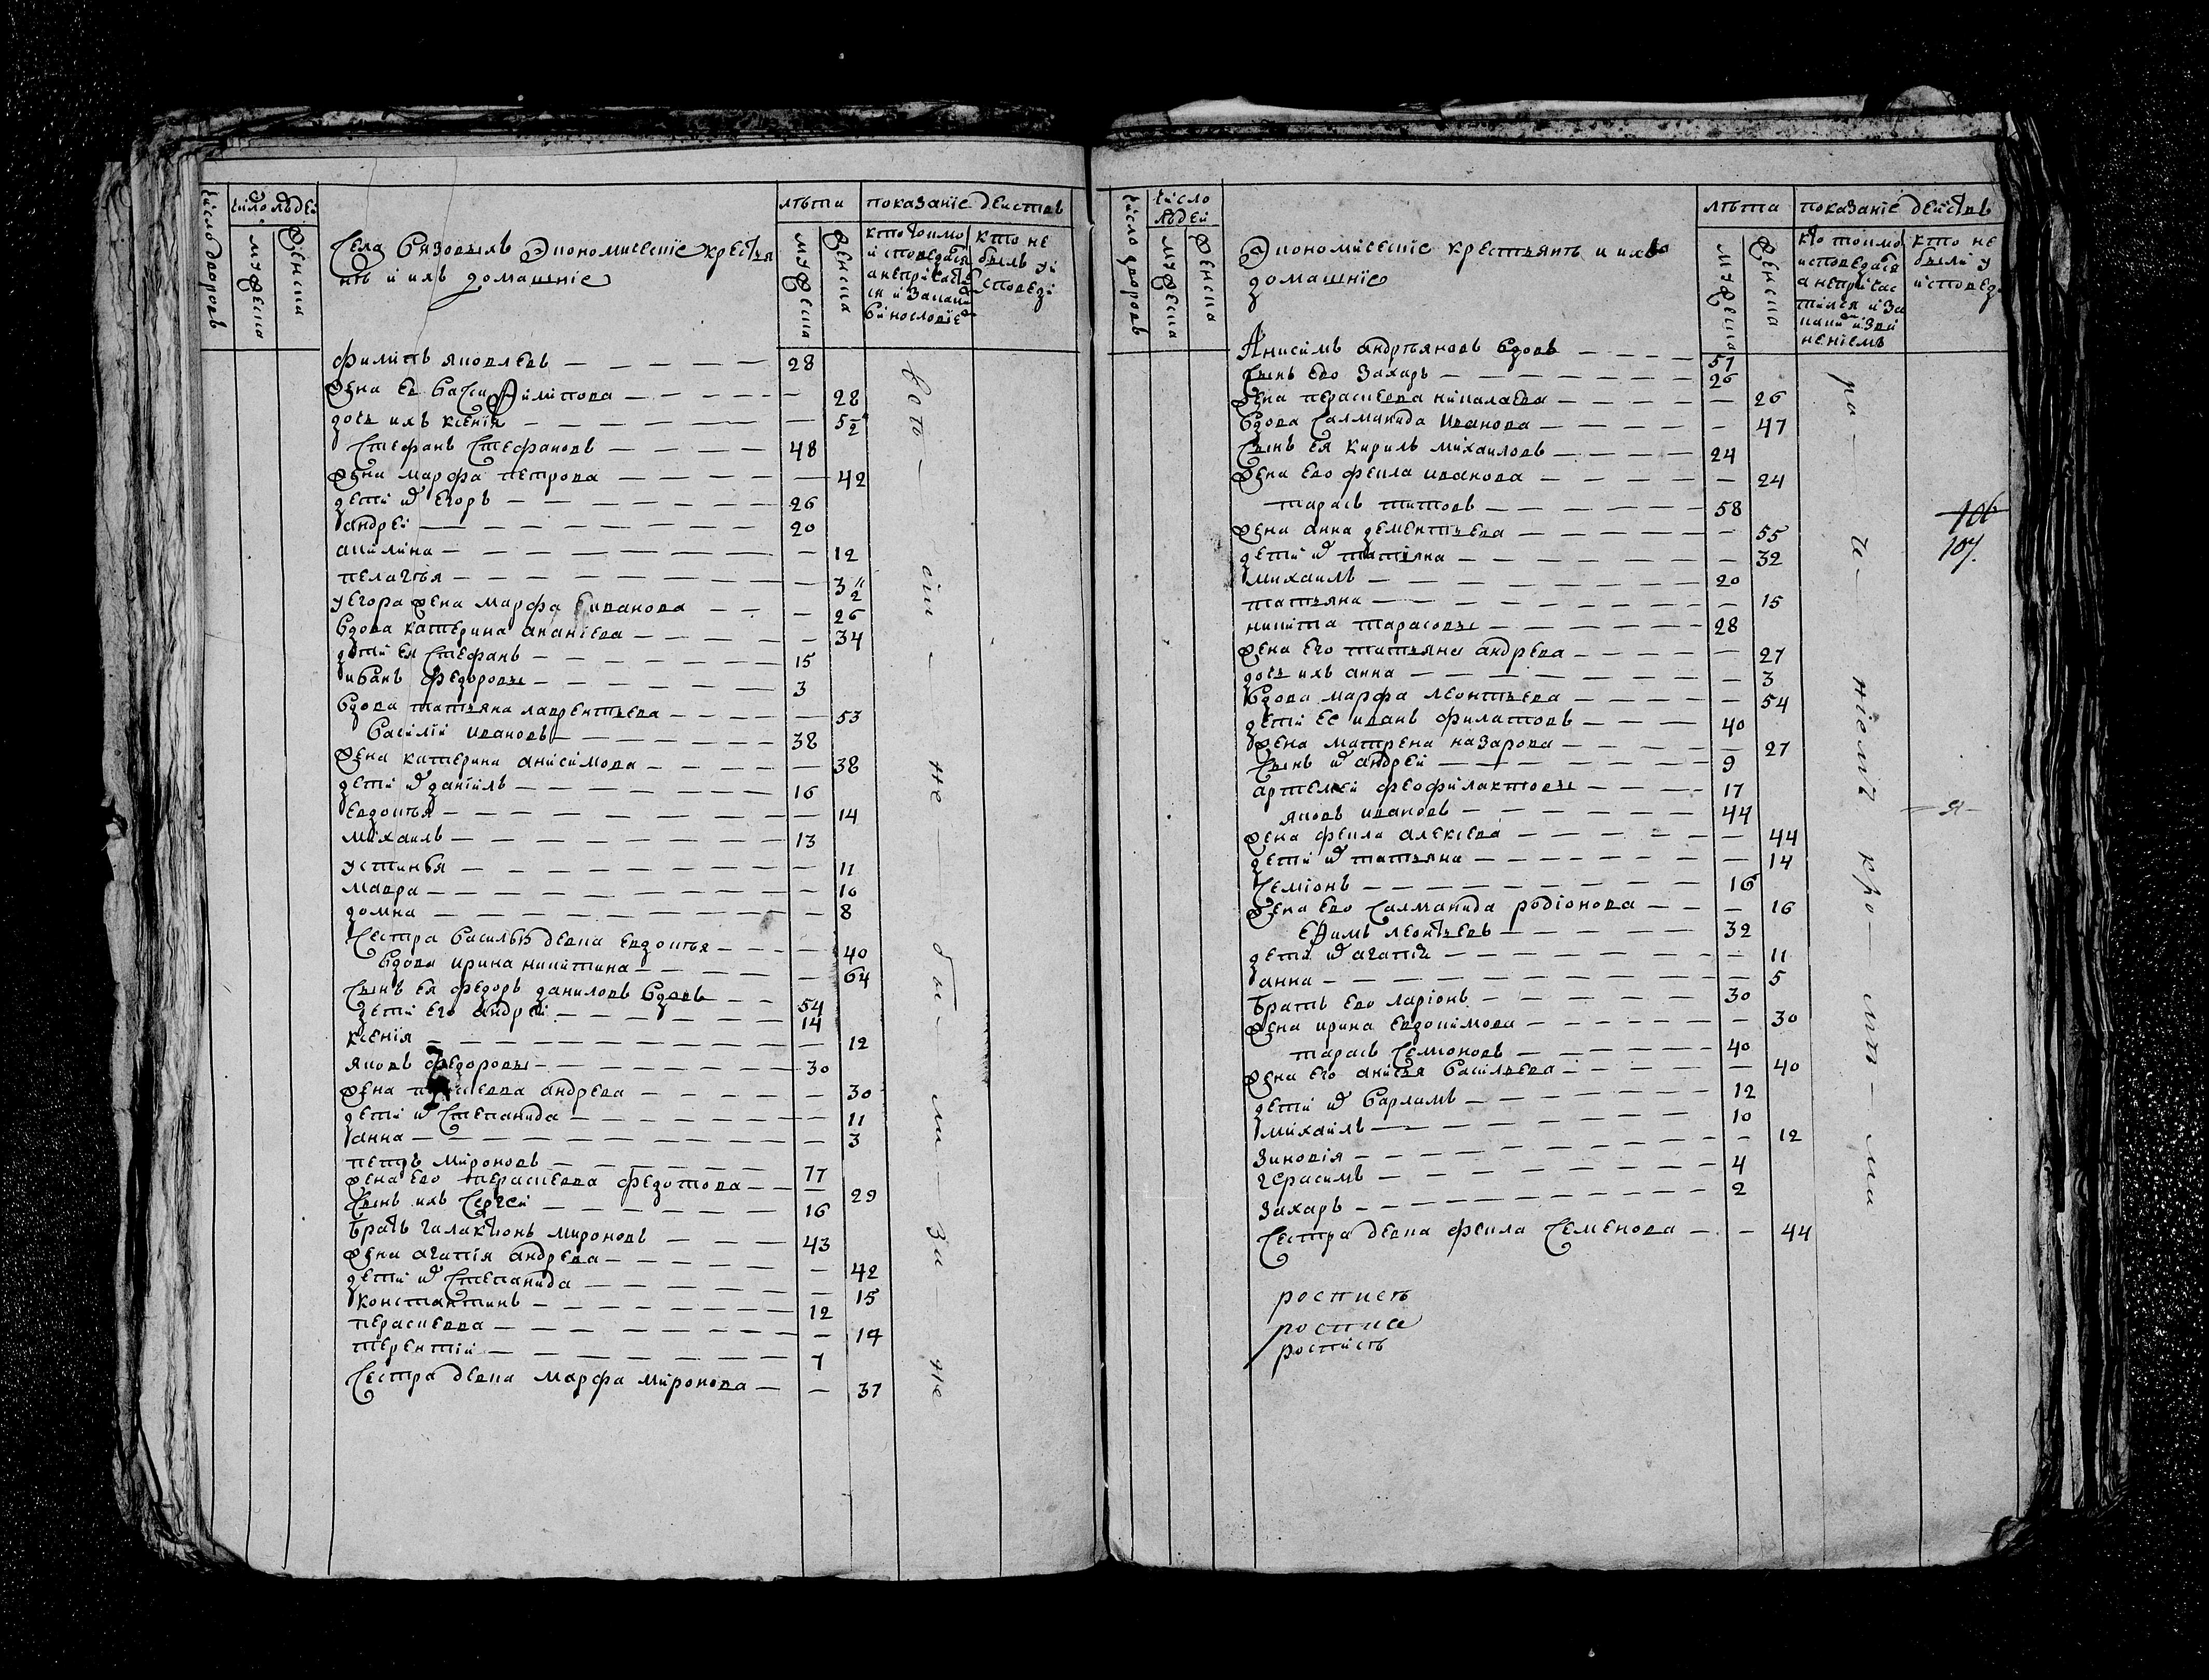 число дворовъ
число людей
мужеска
женска
Села Вязовыхъ Экономические крестья
нъ и ихъ домашние
лѣта
мужеска
женска
показание действъ
кто токмо
исповедася
а непричасти
ся и за каким
винословием
кто не
былъ у и
споведи
филипъ яковлевъ — 28
жена ев Васи филипова — 28
дочь ихъ ксения — 5 2
Стефанъ Стефановъ — 48
жена марфа петрова — 42
дети их Егоръ — 26
андрей — 20
акилина — 12
пелагѣя — 3 2
у Егора жена марфа иванова — 26
Вдова катерина ананьева — 34
дети ея Стефанъ — 15
иванъ федоровы — 3
Вдова татьяна лаврентьева — 53
Василий ивановъ — 38
жена катерина анисимова — 38
дети их данийлъ — 16
Евдокья — 14
михаилъ — 13
устинья — 11
мавра — 10
домна — 8
Сестра Василья девка евдокья — 40
Вдова ирина никитина — 64
Сынъ ея федоръ даниловъ Вдовъ — 54
дети его андрей — 14
ксения — 12
яковъ федоровы — 30
жена парасковья андрева — 30
дети их Степанида — 11
анна — 3
петръ мироновъ — 77
жена ево перасковья федотова — 29
Сынъ ихъ Сергей — 16
братъ галактионъ мироновъ — 43
жена агапия андрева — 42
дети их Степанида — 15
константинъ — 12
перасковья — 14
терентий — 7
Сестра девка марфа миронова — 37
число дворовъ
число
людей
мужеска
женска
Экономические крестьянъ и ихъ
домашние
лѣта
мужеска
женска
показание действъ
кто токмо
исповедася
а непричас
тился и за
каким изви
нениемъ
кто не
были у
исповеди
Анисимъ андрѣяновъ Вдовъ — 57
Сынъ ево Захаръ — 26
жена перасковья николаева — 26
Вдова Салманида иванова — 47
Сынъ ея Кирилъ михаиловъ — 24
жена ево фекла иванова — 24
тарасъ титовъ — 58
жена анна дементьева — 55
дети их татияна — 32
михаилъ — 20
татьяна — 15
никита тарасовы — 28
жена его татьяна андрева — 27
дочь ихъ анна — 3
Вдова марфа леонтьева — 54
дети ее иванъ филатовъ — 40
жена матрена назарова — 27
Сынъ их андрей — 9
артемей феофилактовы — 17
яковъ ивановъ — 44
жена фекла алексева — 44
дети их татьяна — 14
Семионъ — 16
жена ево Салманида родионова — 16
Ефимъ леонтьевъ — 32
дети их агапия — 11
анна — 5
братъ ево ларионъ — 30
жена ирина евдокимова — 30
тарасъ Семионовъ — 40
жена его анисья Васильева — 40
дети их Варламъ — 12
михайлъ — 10
зиновия — 12
герасимъ — 4
захаръ — 2
Сестра девка фекла Семенова — 44
106
107.
роспись
роспис
роспись